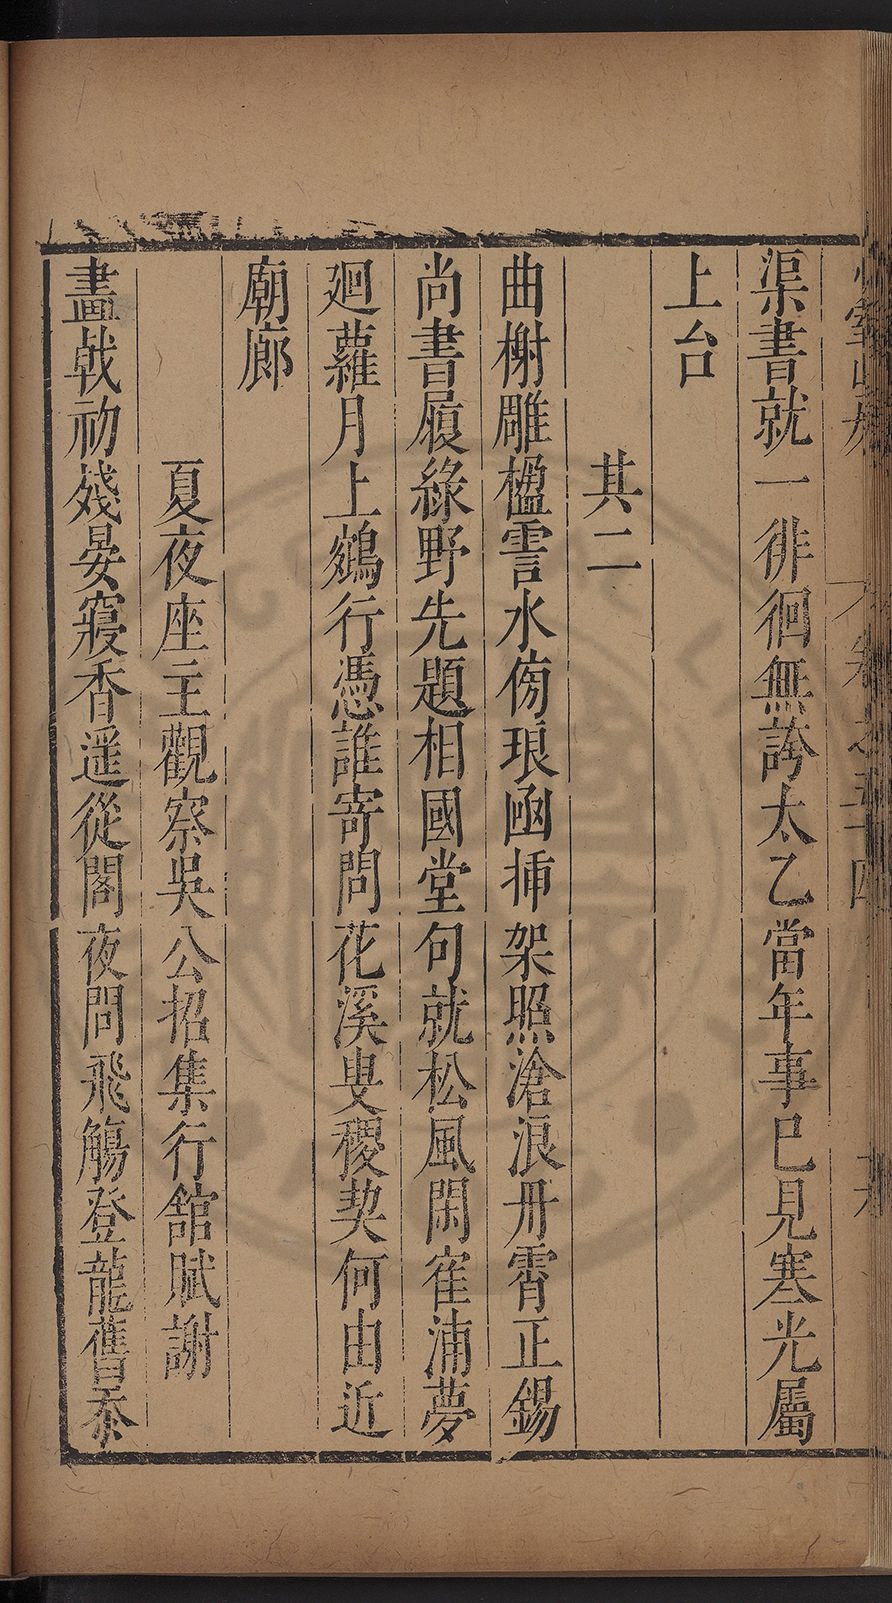 渠書就一徘徊無誇太乙當年事巳見寒光屬
上台
其二
曲榭雕楹霅水傍琅函揷架照滄浪丹霄正錫
尚書履綠野先題相國堂句就松風閑雀浦夢
廻蘿月上鷄行憑誰寄問花溪叟稷契何由近
廟廊
夏夜座主觀察吳公招集行館賦謝
畫戟初殘晏寢香遥從閣夜問飛觴登龍舊忝